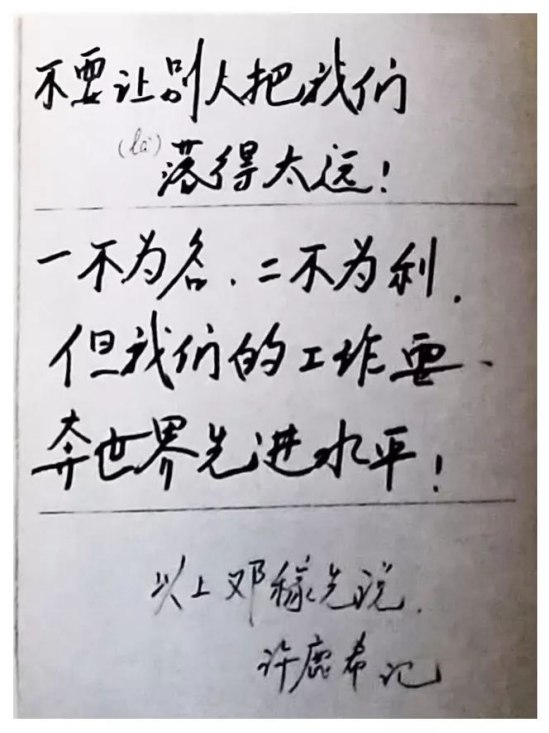 不要让别人把我们
(là)落得太远!
一不为名、二不为利，
但我们的工作要
奔世界先进水平!
以上邓稼先说，
许鹿希记